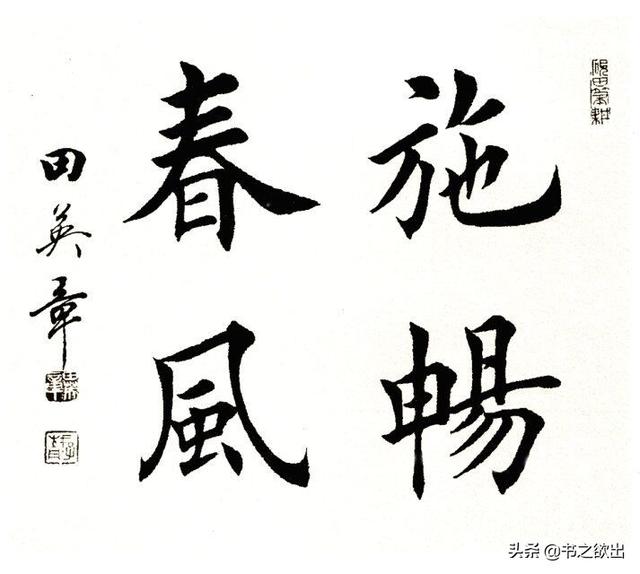 施暢
春風
田英章
头条 @书之欲出